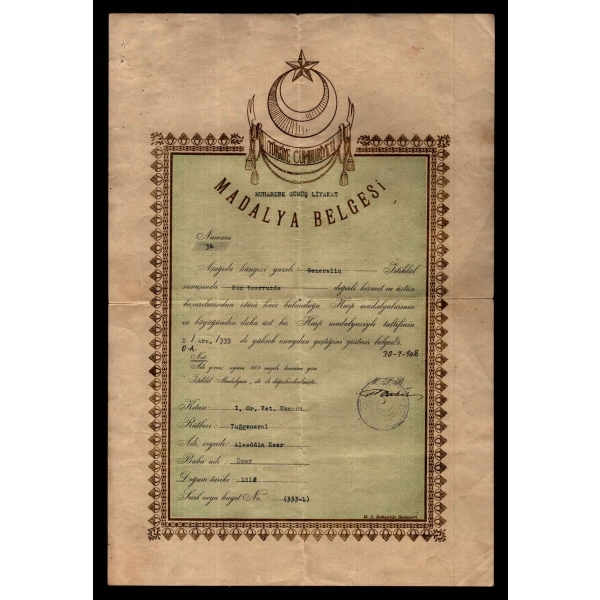 TÜRKİYE CÜMHURİYETİ
MUHAREBE GÜMÜŞ LİYAKAT
MADALYA BELGESİ
Numara
34
Aşağıda künyesi yazılı Generalin İstiklâl
savaşında Son taarruzda değerli hizmet ve üstün
başarılarından ötürü haiz bulunduğu Harp madalyalarının
en büyüğünden daha üst bir Harp madalyasiyle taltifinin
1 Ara. /339 de yüksek onaydan geçtiğini gösterir belgedir.
30-1-948
Not
Adı geçen, ayrıca 869 sayılı kanuna göre
İstiklâl Madalyası, de de değerlendirilmiştir.
Kıtası: I. Or. Vet.
Rütbesi: Tuğgeneral
Adı, soyadı: Alaeddin Eser
Baba adı: Ömer
Doğum tarihi: 1310
Sicil veya kayıt No. (333-1)